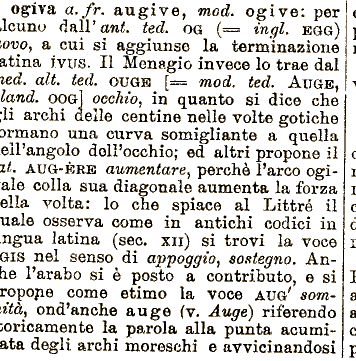 ogiva a. fr. augive, mod. ogive: per
alcuno dall' ant. ted. OG (= ingl. EGG)
ovo, a cui si aggiunse la terminazione
latina ĪVUS. Il Menagio invece lo trae dal
med. alt. ted. OUGE [= mod. ted. AUGE,
oland. OOG] occhio, in quanto si dice che
gli archi delle centine nelle volte gotiche
formano una curva somigliante a quella
dell'angolo dell'occhio; ed altri propone il
lat. AUG-ĒRE aumentare, perchè l'arco ogi-
vale colla sua diagonale aumenta la forza
della volta: lo che spiace al Littré il
quale osserva come in antichi codici in
lingua latina (sec. XII) si trovi la voce
OGIS nel senso di appoggio, sostegno. An-
che l'arabo si è posto a contributo, e si
propone come etimo la voce AUG' som-
mità, ond'anche auge (v. Auge) riferendo
toricamente la parola alla punta acumi-
nata degli archi moreschi e avvicinandosi